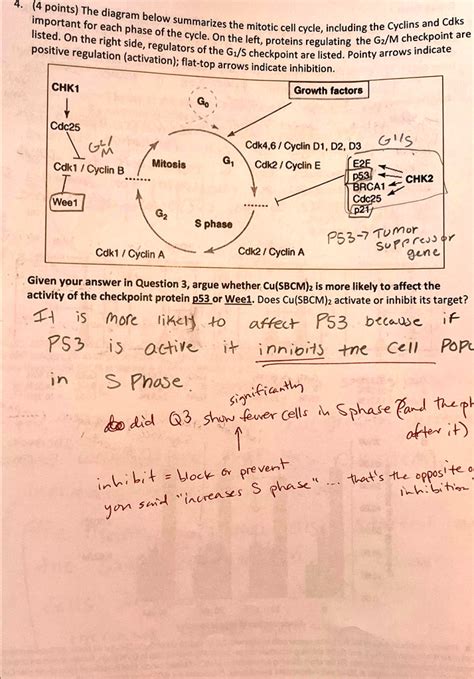 4. (4 points) The diagram below summarizes the mitotic cell cycle, including the Cyclins and Cdks
important for each phase of the cycle. On the left, proteins regulating the G2/M checkpoint are
listed. On the right side, regulators of the G1/S checkpoint are listed. Pointy arrows indicate
positive regulation (activation); flat-top arrows indicate inhibition.
CHK1
Cdc25
G2/M
Cdk1 / Cyclin B
Wee1
G0
Growth factors
Mitosis
G1
G2
S phase
Cdk4,6 / Cyclin D1, D2, D3
G1/S
Cdk2 / Cyclin E
E2F
p53
BRCA1
Cdc25
p21
CHK2
P53→ Tumor
suppressor
gene
Cdk1 / Cyclin A
Cdk2 / Cyclin A
Given your answer in Question 3, argue whether Cu(SBCM)2 is more likely to affect the
activity of the checkpoint protein p53 or Wee1. Does Cu(SBCM)2 activate or inhibit its target?
It is more likely to affect P53 because if
P53 is active it innibits the cell POPU
in S Phase.
significantly
did Q3, show fewer cells in S phase (and the ph
after it)
inhibit = block or prevent
you said "increases S phase" ... that's the opposite o
inhibition